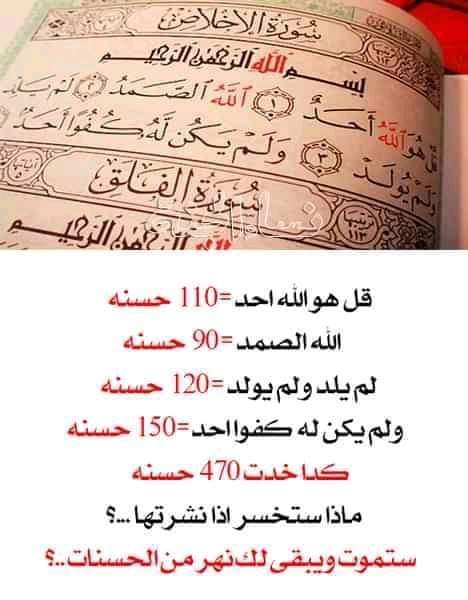 سُورَةُ الإِخْلَاصِ
بِسْمِ اللَّهِ الرَّحْمَٰنِ الرَّحِيمِ
قُلْ هُوَ اللَّهُ أَحَدٌ ١ اللَّهُ الصَّمَدُ ٢ لَمْ يَلِدْ
وَلَمْ يُولَدْ ٣ وَلَمْ يَكُن لَّهُ كُفُوًا أَحَدٌ
سُورَةُ الْفَلَقِ
ترتيبها ١١٣
اللَّهِ الرَّحْمَٰنِ الرَّحِيمِ
قل هو الله احد =110 حسنه
الله الصمد =90 حسنه
لم يلد ولم يولد =120 حسنه
ولم يكن له كفوا احد =150 حسنه
كدا خدت 470 حسنه
ماذا ستخسر اذا نشرتها ...؟
ستموت ويبقى لك نهر من الحسنات ..؟